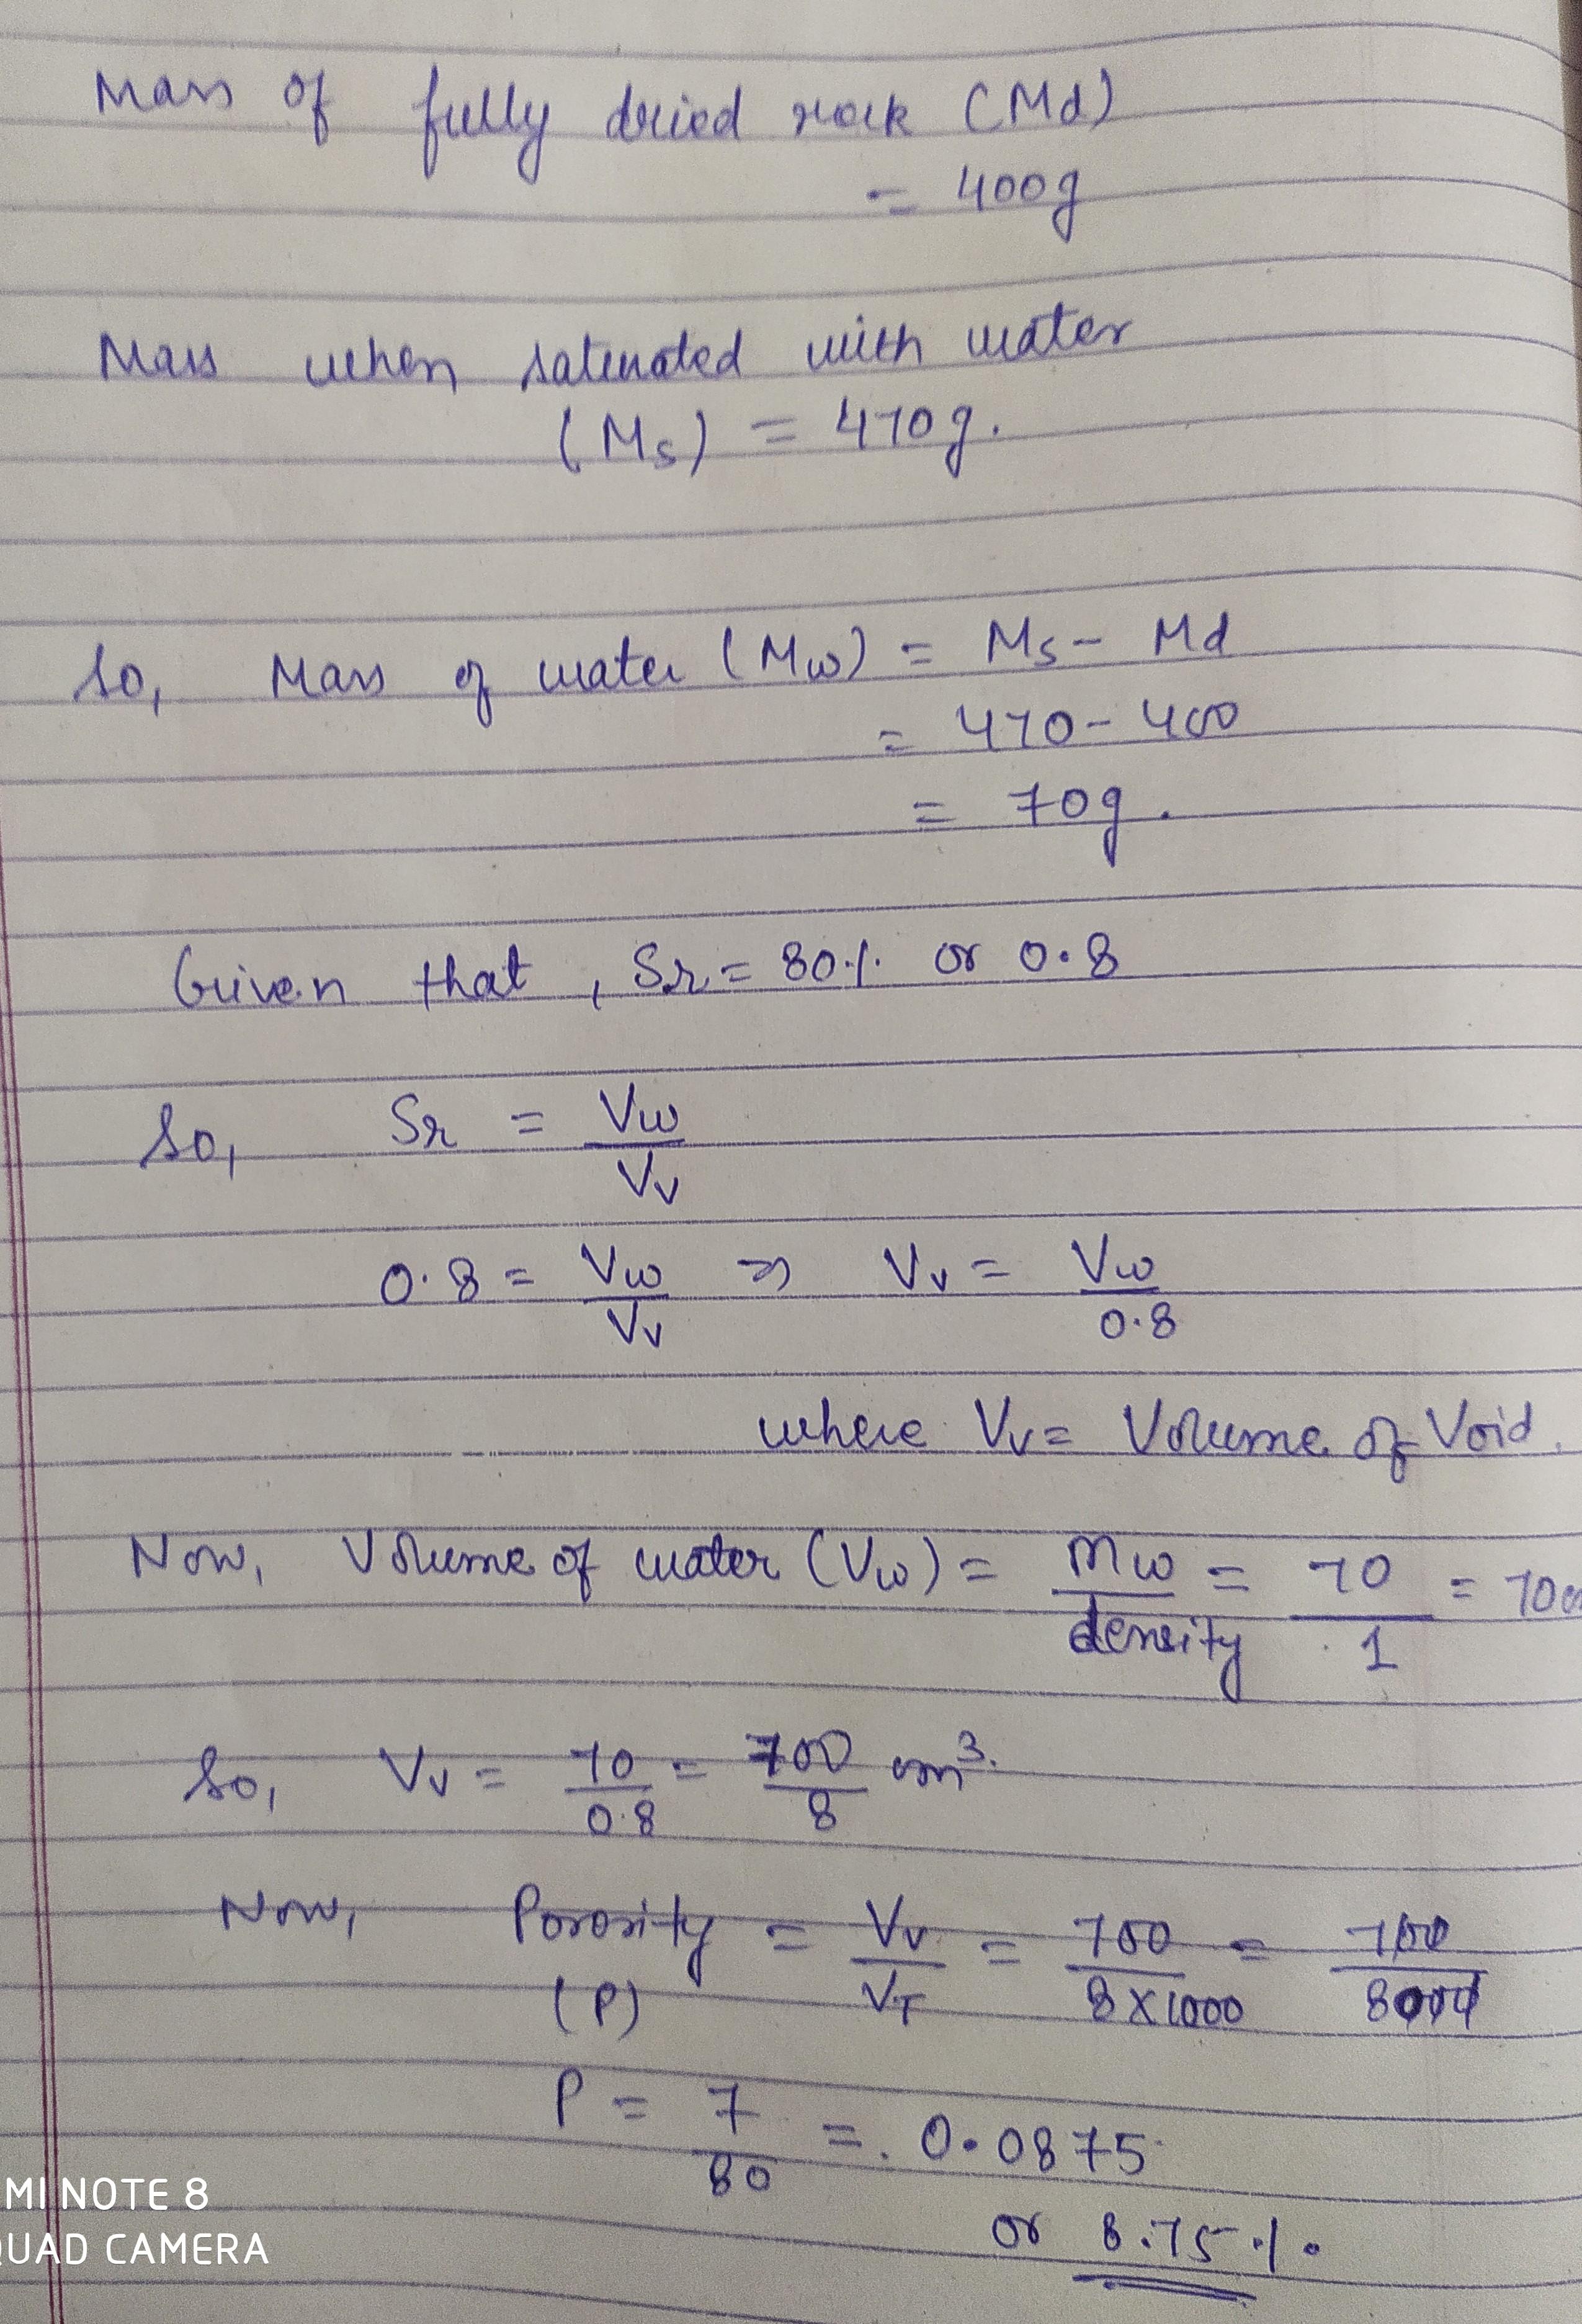 Mass of fully dried rock (Md)
= 400g
Mass when saturated with water
(Ms) = 470g.
So, Mass of water (Mw) = Ms - Md
= 470 - 400
= 70g.
Given that, Sr = 80% or 0.8
So, Sr = Vw/Vv
0.8 = Vw/Vv => Vv = Vw/0.8
where Vv = Volume of Void.
Now, Volume of water (Vw) = Mw/density = 70/1 = 70
So, Vv = 70/0.8 = 700/8 cm³.
Now, Porosity = Vv/VT = 700/8×1000 = 700/8000
(P)
P = 7/80 = 0.0875
or 8.75%.
MI NOTE 8
QUAD CAMERA